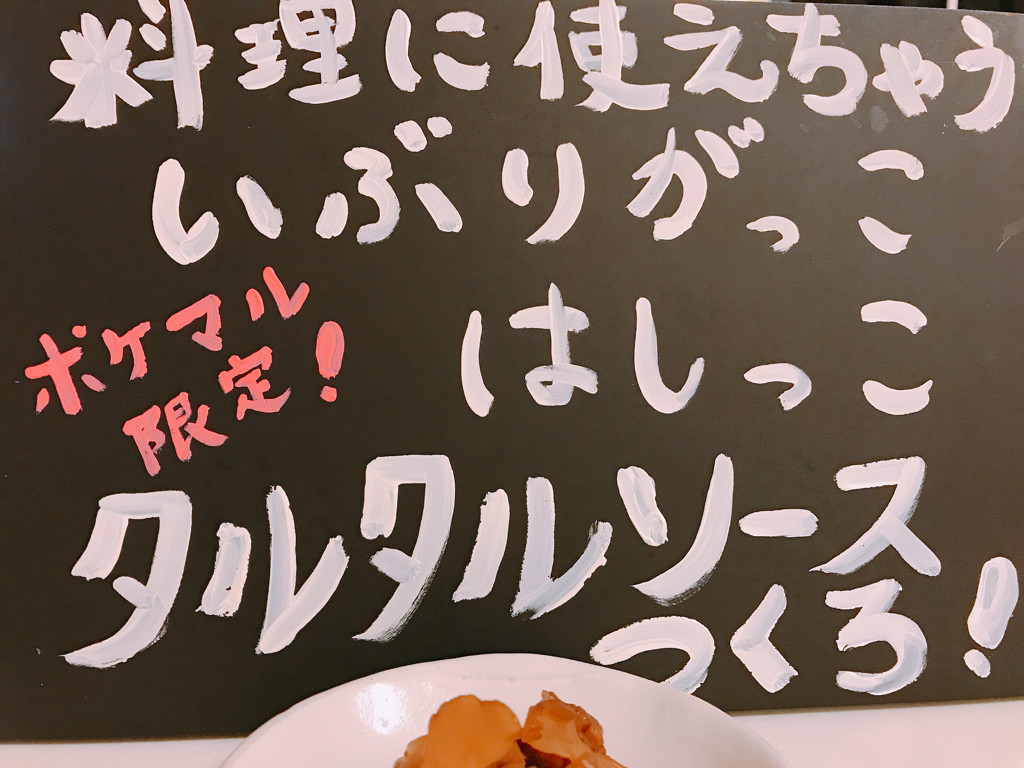 料理に使えちゃう
いぶりがっこ
はしっこ
ポケマル
限定!
タルタルソース
つくろ!